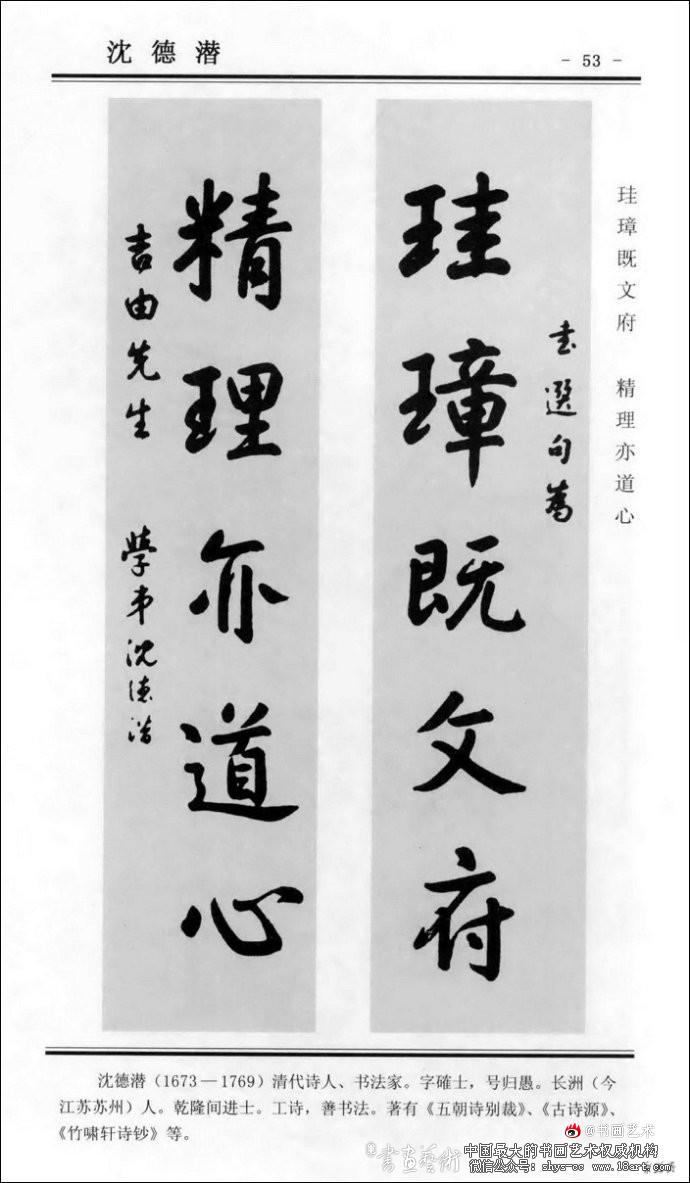 沈德潜
- 53 -
珪璋既文府 精理亦道心
书選句為
珪璋既文府
精理亦道心
吉由先生 學弟沈德潜
沈德潜（1673—1769）清代诗人、书法家。字確士，号归愚。长洲（今
江苏苏州）人。乾隆间进士。工诗，善书法。著有《五朝诗别裁》、《古诗源》、
《竹啸轩诗钞》等。
@书画艺术
书画藝術
中国最大的书画艺术权威机构
微信公众号：shys-cc www.18art.com